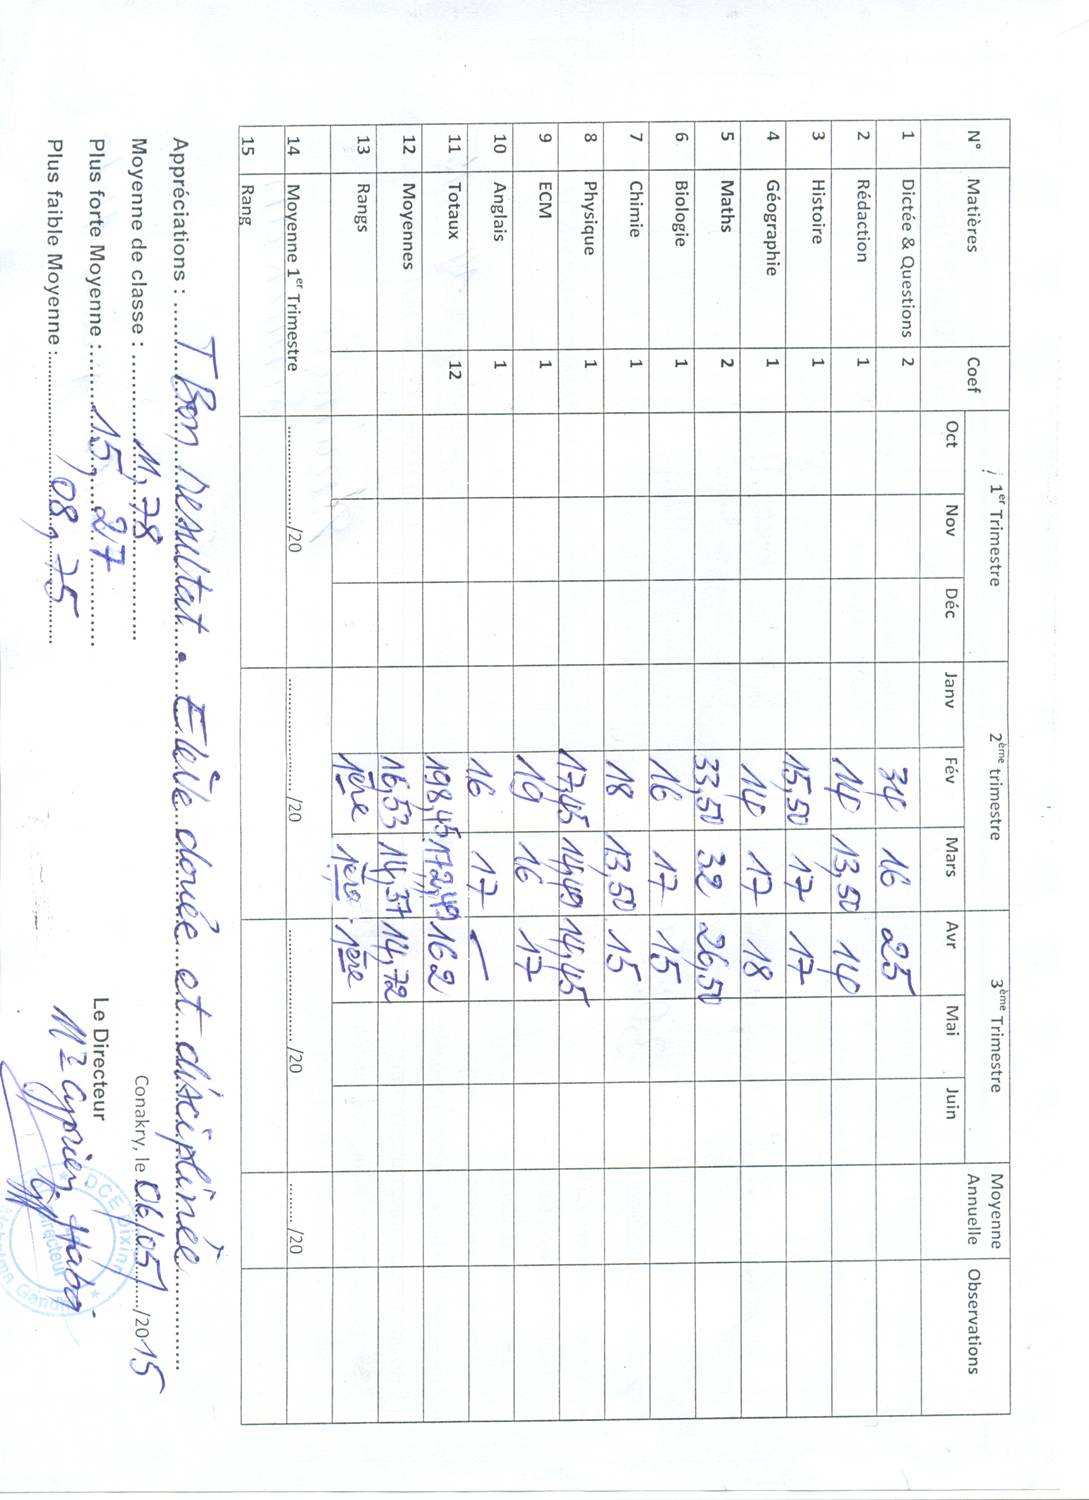 N° Matières Coef 1er Trimestre 2ème trimestre 3ème Trimestre Moyenne Annuelle Observations
Oct Nov Déc Janv Fév Mars Avr Mai Juin
1 Dictée & Questions 2 34 16 25
2 Rédaction 1 14 13,50 14
3 Histoire 1 15,50 17 17
4 Géographie 1 14 17 18
5 Maths 2 33,50 32 26,50
6 Biologie 1 16 17 15
7 Chimie 1 18 13,50 15
8 Physique 1 17,45 14,49 14,45
9 ECM 1 19 16 17
10 Anglais 1 16 17 –
11 Totaux 12 198,45 172,49 162
12 Moyennes 16,53 14,37 14,72
13 Rangs 1ère 1ère 1ère
14 Moyenne 1er Trimestre ……………/20 ……………/20 ……………/20 ……… /20
15 Rang
Appréciations : T Bon resultat. Elève douée et disciplinée
Moyenne de classe : 11,78
Conakry, le 06/05/2015
Plus forte Moyenne : 15,27
Le Directeur
Plus faible Moyenne : 08,75
Mr Cyprien Haba
DCE Dixinn
Directeur
Gandhi